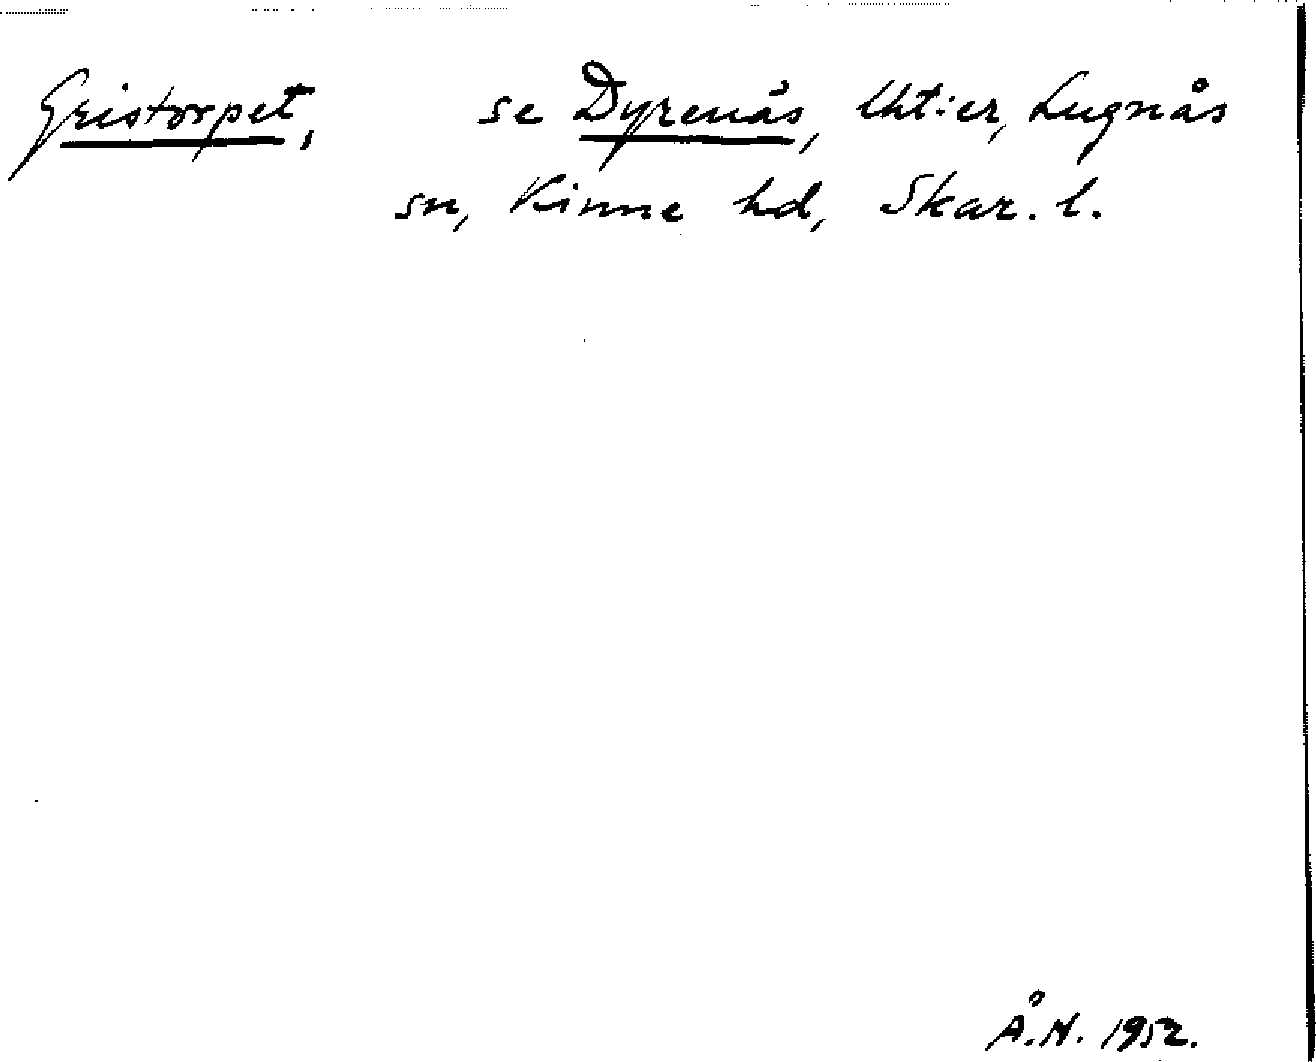 Gristorpet, se Dyrenäs, lht:er, Lugnås
sn, Kinne hd, Skar. l.
Å.N. 1952.